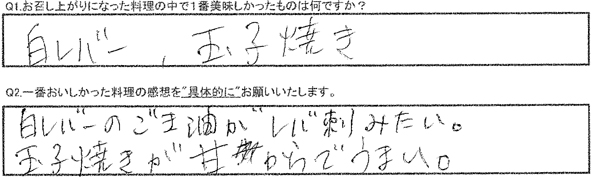 Q1.お召し上がりになった料理の中で1番美味しかったものは何ですか？
白レバー、玉子焼き
Q2.一番おいしかった料理の感想を"具体的に"お願いいたします。
白レバーのごま油がレバ刺みたい。
玉子焼きが甘からでうまい。